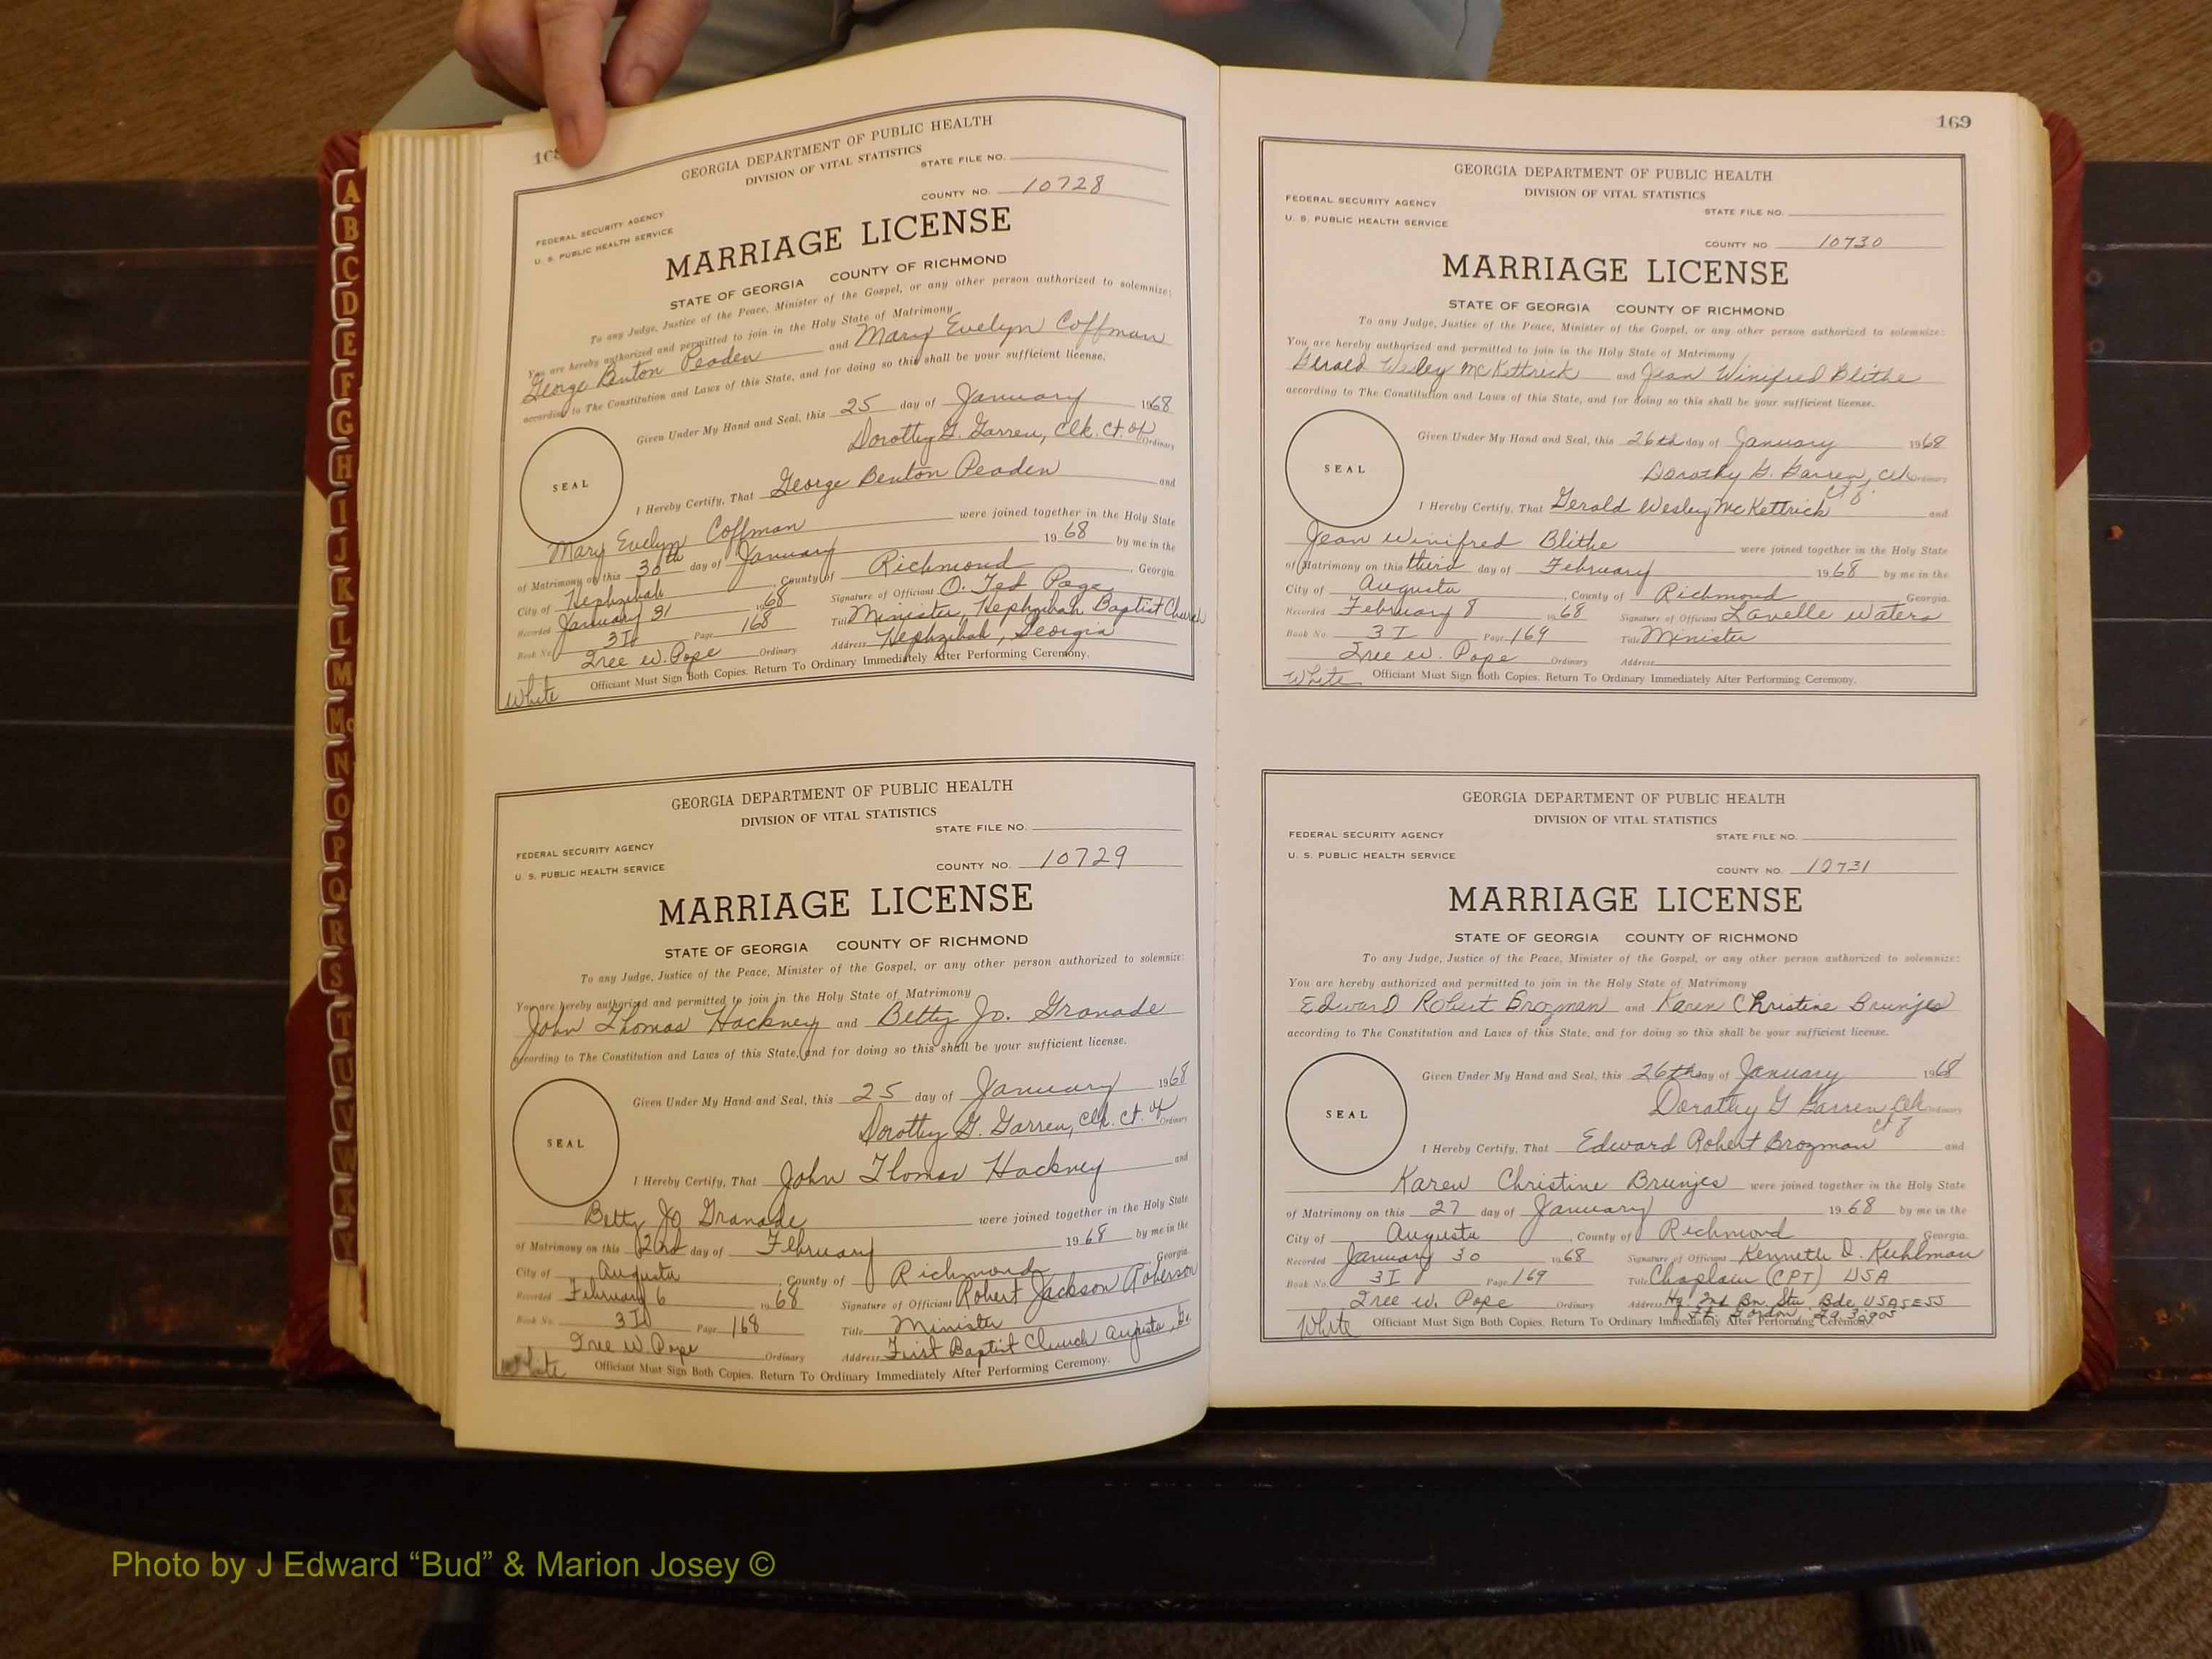 A
B
C
D
E
F
G
H
I
J
K
L
M
Mc
N
O
P
Q
R
S
T
U
V
W
X
Y
GEORGIA DEPARTMENT OF PUBLIC HEALTH
DIVISION OF VITAL STATISTICS
STATE FILE NO.
COUNTY NO. 10728
FEDERAL SECURITY AGENCY
U. S. PUBLIC HEALTH SERVICE
MARRIAGE LICENSE
STATE OF GEORGIA COUNTY OF RICHMOND
To any Judge, Justice of the Peace, Minister of the Gospel, or any other person authorized to solemnize:
You are hereby authorized and permitted to join in the Holy State of Matrimony
George Benton Peaden and Mary Evelyn Coffman
according to The Constitution and Laws of this State, and for doing so this shall be your sufficient license.
Given Under My Hand and Seal, this 25 day of January 1968
Dorothy G. Garren, Clk. Ct. of Ordinary
SEAL
I Hereby Certify, That George Benton Peaden and
Mary Evelyn Coffman were joined together in the Holy State
of Matrimony on this 30th day of January 1968 by me in the
City of Hephzibah, County of Richmond, Georgia
Recorded January 31 1968 Signature of Officiant O. Ted Page
Book No. 3I Page 168 Title Minister, Hephzibah Baptist Church
Tree W. Pope Ordinary Address Hephzibah, Georgia
Officiant Must Sign Both Copies. Return To Ordinary Immediately After Performing Ceremony.
White
GEORGIA DEPARTMENT OF PUBLIC HEALTH
DIVISION OF VITAL STATISTICS
STATE FILE NO.
FEDERAL SECURITY AGENCY
U. S. PUBLIC HEALTH SERVICE
COUNTY NO. 10729
MARRIAGE LICENSE
STATE OF GEORGIA COUNTY OF RICHMOND
To any Judge, Justice of the Peace, Minister of the Gospel, or any other person authorized to solemnize:
You are hereby authorized and permitted to join in the Holy State of Matrimony
John Thomas Hackney and Betty Jo. Granade
according to The Constitution and Laws of this State, and for doing so this shall be your sufficient license.
Given Under My Hand and Seal, this 25 day of January 1968
Dorothy G. Garren, Clk. Ct. of Ordinary
SEAL
I Hereby Certify, That John Thomas Hackney and
Betty Jo Granade were joined together in the Holy State
of Matrimony on this 2nd day of February 1968 by me in the
City of Augusta, County of Richmond Georgia.
Recorded February 6 1968 Signature of Officiant Robert Jackson Roberson
Book No. 3I Page 168 Title Minister
Tree W Pope Ordinary Address First Baptist Church Augusta, Ga.
Officiant Must Sign Both Copies. Return To Ordinary Immediately After Performing Ceremony.
White
169
GEORGIA DEPARTMENT OF PUBLIC HEALTH
DIVISION OF VITAL STATISTICS
FEDERAL SECURITY AGENCY
STATE FILE NO.
U. S. PUBLIC HEALTH SERVICE
COUNTY NO 10730
MARRIAGE LICENSE
STATE OF GEORGIA COUNTY OF RICHMOND
To any Judge, Justice of the Peace, Minister of the Gospel, or any other person authorized to solemnize:
You are hereby authorized and permitted to join in the Holy State of Matrimony
Gerald Wesley McKettrick and Jean Winifred Blithe
according to The Constitution and Laws of this State, and for doing so this shall be your sufficient license.
Given Under My Hand and Seal, this 26th day of January 1968
Dorothy G. Garren, Clk Ordinary
Ct of
SEAL
I Hereby Certify, That Gerald Wesley McKettrick and
Jean Winifred Blithe were joined together in the Holy State
of Matrimony on this third day of February 1968 by me in the
City of Augusta, County of Richmond Georgia.
Recorded February 8 1968 Signature of Officiant Lavelle Waters
Book No. 3I Page 169 Title Minister
Tree W. Pope Ordinary Address
White Officiant Must Sign Both Copies. Return To Ordinary Immediately After Performing Ceremony.
GEORGIA DEPARTMENT OF PUBLIC HEALTH
DIVISION OF VITAL STATISTICS
FEDERAL SECURITY AGENCY
STATE FILE NO.
U. S. PUBLIC HEALTH SERVICE
COUNTY NO. 10731
MARRIAGE LICENSE
STATE OF GEORGIA COUNTY OF RICHMOND
To any Judge, Justice of the Peace, Minister of the Gospel, or any other person authorized to solemnize:
You are hereby authorized and permitted to join in the Holy State of Matrimony
Edward Robert Brozman and Karen Christine Brunjes
according to The Constitution and Laws of this State, and for doing so this shall be your sufficient license.
Given Under My Hand and Seal, this 26th day of January 1968
Dorothy G Garren Clk Ordinary
Ct of
SEAL
I Hereby Certify, That Edward Robert Brozman and
Karen Christine Brunjes were joined together in the Holy State
of Matrimony on this 27 day of January 1968 by me in the
City of Augusta, County of Richmond Georgia.
Recorded January 30 1968 Signature of Officiant Kenneth D. Kuhlman
Book No. 3I Page 169 Title Chaplain (CPT) USA
Tree W. Pope Ordinary Address Hq. 2nd Bn. Stu. Bde, USASESS
Ft. Gordon, Ga. 30905
White Officiant Must Sign Both Copies. Return To Ordinary Immediately After Performing Ceremony.
Photo by J Edward “Bud” & Marion Josey ©